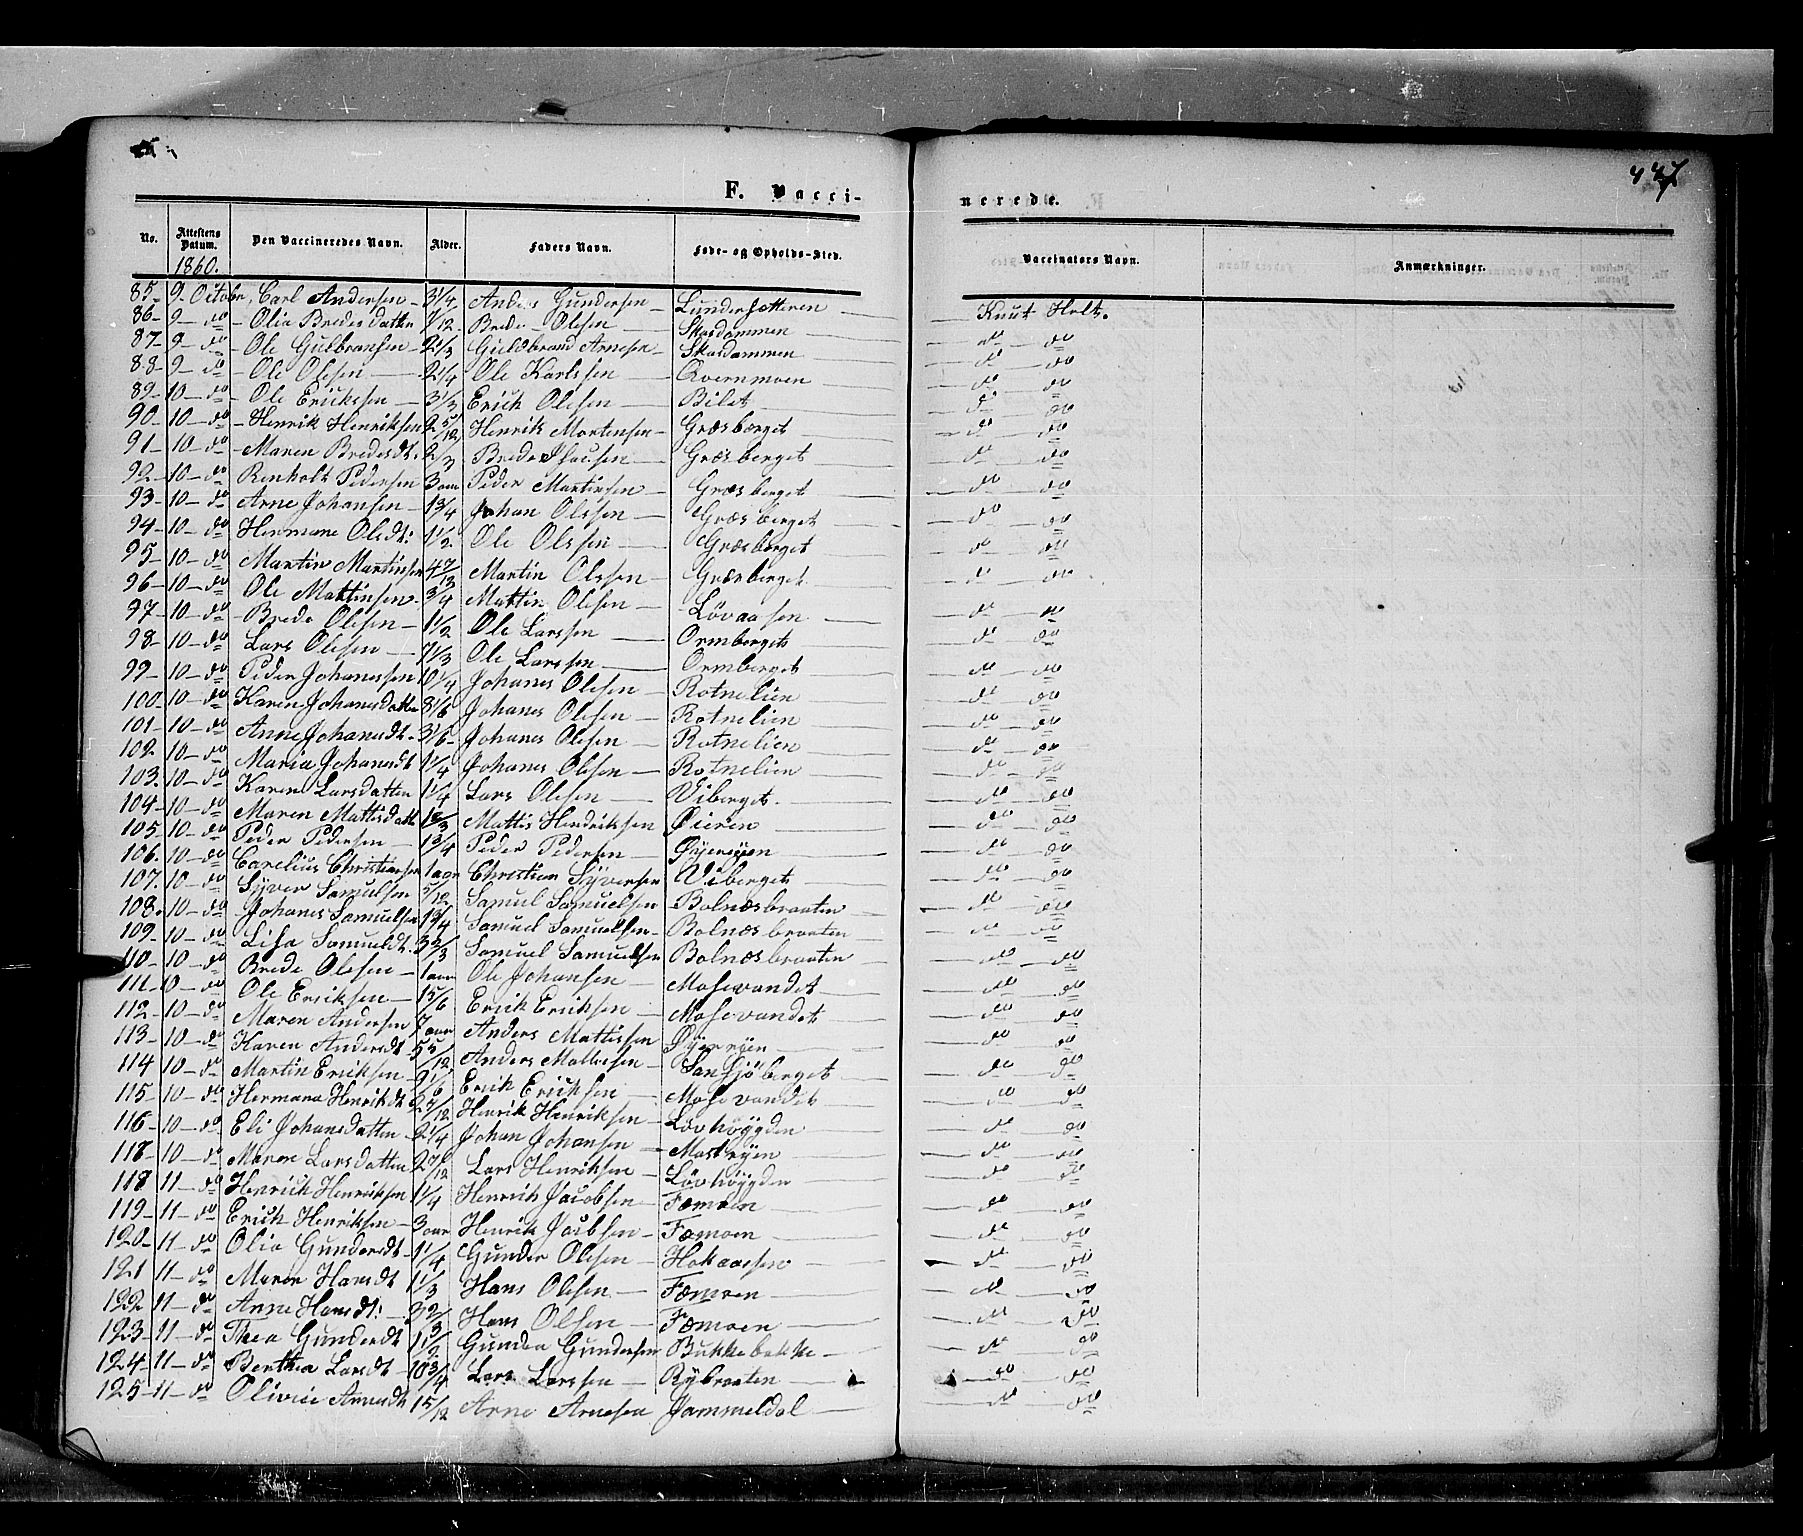 447
F. Vacci-
neredte.
No.
Attestens Datum.
Den Vaccineredes Navn.
Alder.
Faders Navn.
Føde- og Opholds-Sted.
Vaccinators Navn.
Anmærkninger.
1860.
85 9 Octobr Carl Andersen 3 1/4 Anders Gundersen Lundersætteren Knut Holt.
86 9 do Olia Bredesdatter 7/12 Brede Olesen Skasdammen do do
87 9 do Ole Gulbransen 2 1/3 Guldbrand Arnesen Skasdammen do do
88 9 do Ole Olesen 2 1/4 Ole Karlssen Qvernmoen do do
89 10 do Ole Erickssen 3 1/3 Erick Olesen Bilet do do
90 10 do Henrik Henriksen 2 5/12 Henrik Mortensen Græsberget do do
91 10 do Maren Bredesdt. 2/3 Brede Græsberget do do
92 10 do Renholt Pedersen 3 aar Peder Martinsen Græsberget do do
93 10 do Arne Johansen 1 3/4 Johan Olssen Græsberget do do
94 10 do Hermane Olsdt: 1 1/2 Ole Olssen Græsberget do do
95 10 do Martin Martinsen 4 7/12 Martin Olssen Græsberget do do
96 10 do Ole Mattinsen 3/4 Mattin Olesen Løvaasen do do
97 10 do Brede Olesen 1 1/2 Ole Larssen Ormberget do do
98 10 do Lars Olesen 7 1/3 Ole Larssen Ormberget do do
99 10 do Peder Johanessen 10 1/4 Johanes Olesen Rotnelien do do
100 10 do Karen Johanesdatter 8 1/6 Johanes Olesen Rotnelien do do
101 10 do Anne Johanesdt. 3 1/6 Johanes Olesen Rotnelien do do
102 10 do Maria Johanesdt 1 1/4 Johanes Olesen Rotnelien do do
103 10 do Karen Larsdatter 1 1/4 Lars Olesen Viberget do do
104 10 do Maren Mattisdatter 1 2/3 Mattis Hendriksen Øieren do do
105 10 do Peder Pedersen 1 3/4 Peder Pedersen Øyerøyen do do
106 10 do Carelius Christiansen 1 aar Christian Syversen Viberget do do
107 10 do Syver Samulsen 5/12 Samul Samuelsen Bolnæsbraaten do do
108 10 do Johanes Samulsen 1 3/4 Samuel Samuelsen Bolnæsbraaten do do
109 10 do Lisa Samueldt. 3 2/3 Samuel Samuelsen Bolnæsbraaten do do
110 10 do Brede Olesen 1 aar Ole Johansen Mosevandet do do
111 10 do Ole Eriksen 1 5/6 Erick Ericksen Mosevandet do do
112 10 do Maren Andersen 7 aar Anders Mattissen Øyerøyen do do
113 10 do Karen Andersdt 5 5/12 Anders do do
114 10 do Martin Eriksen 9 1/6 Erik Ericksen Mosevandet do do
115 10 do Hermana Henrikdt 2 7/12 Henrik Henriksen Løvhøygden do do
116 10 do Eli Johansdatter 2 1/4 Johan Johansen do do
118 10 do Maren Larsdatter 2 7/12 Lars Henriksen Løvhøygden do do
118 11 do Henrick Henriksen 1 1/4 Henrich Jacobsen Fæmoen do do
119 11 do Erich Henriksen 3 aar Henrik Jacbsen Fæmoen do do
120 11 do Olia Gundersdt 1 1/4 Gunder Olesen Hokaassen do do
121 11 do Maren Hansdt 1 1/3 Hans Olesen Fæmoen do do
122 11 do Anne Hansdt: 3 2/3 Hans Olsen Fæmoen do do
123 11 do Thea Gunderdt 1 1/2 Gunder Gundersen Bukkebakke do do
124 11 do Berthea Larsdt 10 3/4 Lars Larssen Rybraaten do do
125 11 do Olivie Arnesdt 1 5/12 Arne Arnesen Jammeldal do do